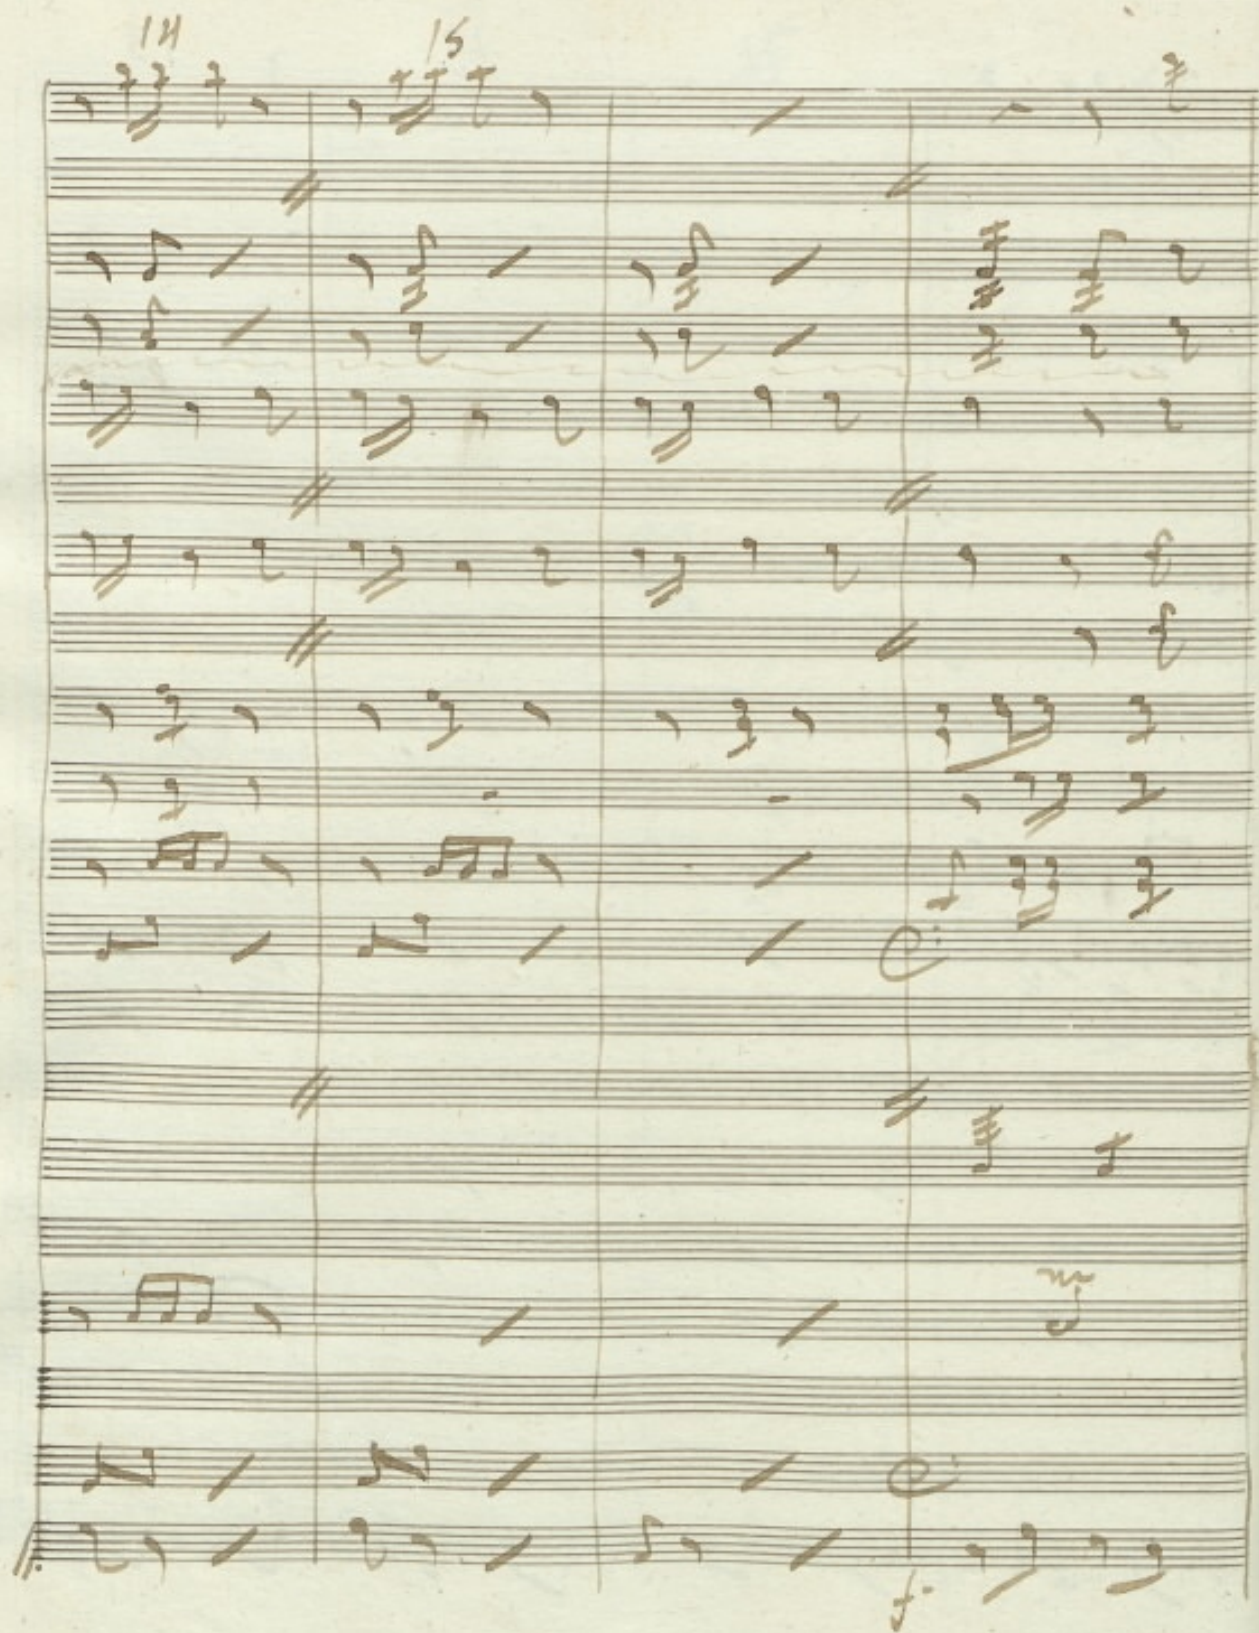 14 15
f.